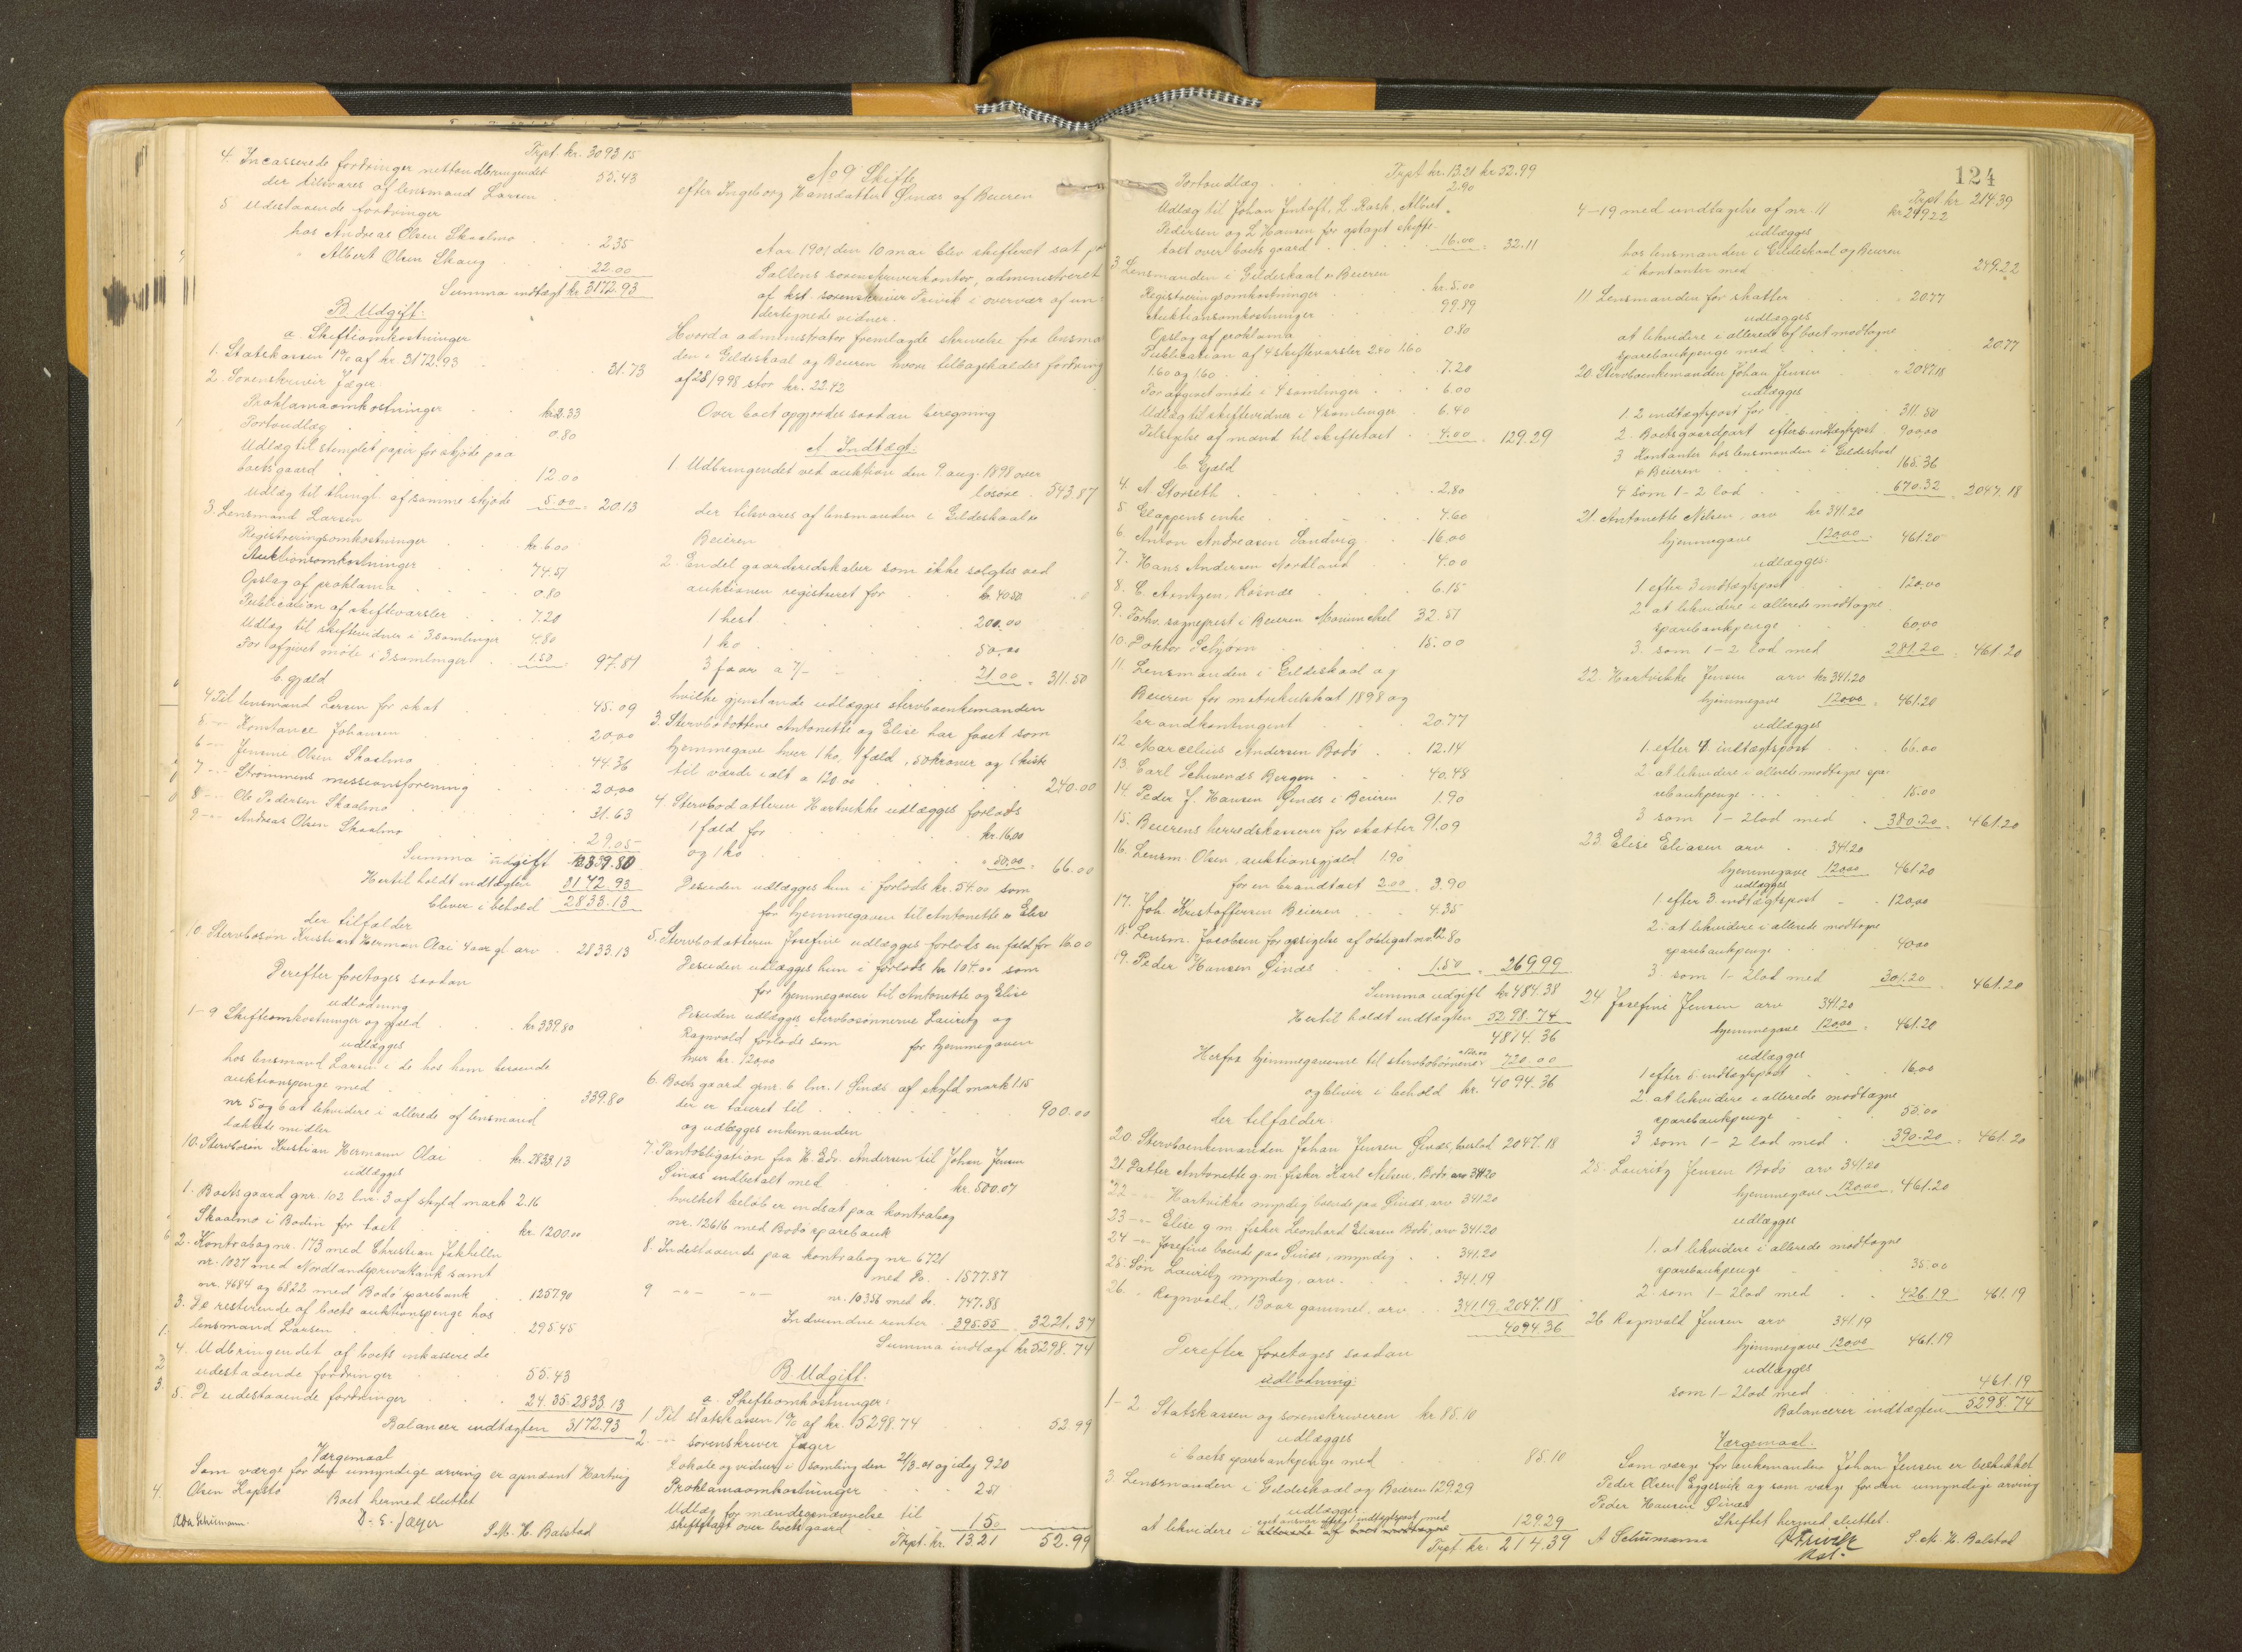 Trpt. kr. 3093.15
4. Incasserede fordringer nettoudbringendet
der tilsvares af lensmand Larsen . 55.43
5 Udestaaende fordringer
hos Andreas Olsen Skaalmo . . 2.35
" Albert Olsen Skaug . . 22.00
Summa indtægt kr. 3172.93
B. Udgift.
a. Skifteomkostninger
1. Statskassen 1% af kr. 3172.93 . . 31.73
2. Sorenskriver Jæger
Proklamaomkostninger . . kr. 2.33
Portoudlæg . . 0.80
Udlæg til stemplet papir for skjøde paa
boets gaard . . 12.00
Udlæg til thingl. af samme skjøde 5.00 = 20.13
3. Lensmand Larsen
Registreringsomkostninger . . kr. 6.00
Auktionsomkostninger . . 74.51
Opslag af proklama . . 0.80
Publication af skiftevarsler . . 7.20
Udlæg til skiftevidner i 3 samlinger 4.80
For afgivet møde i 3 samlinger . 1.50 = 97.81
b. gjæld
4 Til lensmand Larsen for skat . . 45.09
5 -"- Konstance Johansen . . 20.00
6 -"- Jensine Olsen Skaalmo . . 44.36
7 -"- Strømmens missionsforening . . 20.00
8 -"- Ole Pedersen Skaalmo . . 31.63
9 -"- Andreas Olsen Skaalmo . . 29.05
Summa udgift kr. 339.80
Hertil holdt indtægten 3172.93
bliver i behold 2833.13
der tilfalder
10. Stervbosøn Kristian Herman Olai 4 aar gl. arv . 2833.13
Derefter foretages saadan
udlodning
1-9 Skifteomkostninger og gjæld . . kr. 339.80
udlægges
hos lensmand Larsen i de hos ham beroende
auktionspenge med . . 339.80
nr 5 og 6 at likvidere i allerede af lensmand
midler
10. Stervbosøn Kristian Hermann Olai . kr. 2833.13
udlægges
1. Boets gaard gnr. 102 bnr. 3 af skyld mark 2.16
Skaalmo i Bodin for taxt . . kr. 1200.00
2. Kontrabog nr. 173 med Christian Jakhelln
nr. 1027 med Nordlands privatbank samt
nr. 4684 og 6822 med Bodø sparebank . . 1257.90
3. De resterende af boets auktionspenge hos
lensmand Larsen . . 295.45
4. Udbringendet af boets inkasserede
udestaaende fordringer . . 55.43
5. De udestaaende fordringer . . 24.35 = 2833.13
Balancer indtægten 3172.93
Værgemaal
Som værge for den umyndige arving er opnævnt Hartvig
Olsen Kapstø
Boet hermed sluttet
Ada Schumann. D. E. Jæger S. M. H. Balstad
No 9 Skifte
efter Ingeborg Hansdatter Sinæs af Beieren
Aar 1901 den 10 mai blev skifteret sat paa
Saltens sorenskriverkontor, administreret
af kst. sorenskriver Privik i overvær af un-
dertegnede vidner.
Hvorda administrator fremlagde skrivelse fra lensman-
den i Gildeskaal og Beieren hvori tilbageholdes fordring
af 28/9 98 stor kr. 22.42
Over boet opgjordes saadan beregning
A. Indtægt.
1. Udbringendet ved auktion den 9 aug. 1898 over
løsøre . 543.87
der tilsvares af lensmanden i Gildeskaal o
Beieren
2. En del gaardsredskaber som ikke solgtes ved
auktionen registreret for . . kr. 40.50
1 hest . . 200.00
1 ko . . 50.00
3 faar a 7/- . . 21.00 = 311.50
hvilke gjenstande udlægges stervboenkemanden
3. Stervbodøttrene Antonette og Elise har faaet som
hjemmegave hver 1 ko, 1 fæld, 50 kroner og 1 kiste
til værdi ialt a 120.00 . . 240.00
4. Stervbodatteren Hartvikke udlægges forlods
1 fæld for . . kr. 16.00
og 1 ko . . " 50.00 = 66.00
Desuden udlægges hun i forlods kr. 54.00 som
for hjemmegaven til Antonette o Elise
5. Stervbodatteren Josefine udlægges forlods en fæld for 16.00
Desuden udlægges hun i forlods kr 104.00 som
for hjemmegaven til Antonette og Elise
Desuden udlægges stervbosønnerne Lauritz og
Ragnvald forlods som for hjemmegaven
hver kr. 120.00
6. Boets gaard gnr. 6 bnr. 1 Sinæs af skyld mark 1.15
der er taxeret til . . 900.00
og udlægges enkemanden
7. Pantobligation fra H. Edv. Andersen til Johan Jensen
Sinæs indbetalt med . . kr. 500.07
hvilket beløb er indsat paa kontrabog
nr. 12616 med Bodø sparebank
8. Indestaaende paa kontrabog nr. 6721
med do. . 1577.87
9 -"- -"- nr. 10356 med do. 747.88
Indvundne renter . 395.55 . 3221.37
Summa indtægt kr 5298.74
B. Udgift.
a. Skifteomkostninger:
1. Til statskassen 1% af kr. 5298.74 . . 52.99
2. -"- sorenskriver Jæger
Lokale og vidner i samling den 21/3-01 og idag 9.20
Proklamaomkostninger . . 2.51
Udlæg for mændsopnævnelse til
skiftetaxt over boets gaard . . 1.50
Trpt. kr. 13.21 52.99
124
Trpt. kr. 13.21 kr 52.99
Portoudlæg . . 2.90
Udlæg til Johan Jentoft, L. Rask, Albert
Pedersen og L. Hansen for optaget skifte-
taxt over boets gaard . . 16.00 = 32.11
3. Lensmanden i Gildeskaal o Beieren
Registreringsomkostninger . . kr. 5.00
Auktionsomkostninger . . 99.89
Opslag af proklama . . 0.80
Publication af 4 skiftevarsler 2.40 1.60
1.60 og 1.60 . . 7.20
For afgivet møde i 4 samlinger . . 6.00
Udlæg til skiftevidner i 4 samlinger . 6.40
Tilsigelse af mænd til skiftetaxt . 4.00 = 129.29
b. Gjæld
4. A. Storseth . . 2.80
5 Clappens enke . . 4.60
6. Anton Andreasen Sandvig . . 16.00
7. Hans Andersen Nordland . . 4.00
8. C. Arntzen, Røsnæs . . 6.15
9. Forhv. sogneprest i Beieren Mourinckel 32.51
10. Doktor Schjørn . . 15.00
11. Lensmanden i Gildeskaal og
Beieren for matrikulskat 1898 og
brandkontingent . . 20.77
12. Marcelius Andersen Bodø . . 12.14
13. Carl Schwenæs Bergen . . 40.48
14. Peder J. Hansen Sinæs i Beieren 1.90
15. Beierens herredskasserer for skatter 91.09
16. Lensm. Olsen, auktionsgjæld 1.90
for en brandtaxt 2.00 . 3.90
17. Joh. Kristoffersen Beieren . . 4.35
18. Lensm. Jacobsen for opsigelse af obligat. 80
19. Peder Hansen Sinæs . . 1.50 = 269.99
Summa udgift kr 484.38
Hertil holdt indtægten 5298.74
4814.36
Herfra hjemmegaverne til stervbobørnene a 120.00 720.00
og bliver i behold kr. 4094.36
der tilfalder:
20. Stervboenkemanden Johan Jensen Sinæs, boslod 2047.18
21. Datter Antonette g.m. fisker Karl Nilsen, Bodø arv 341.20
22 -"- Hartvikke myndig boende paa Sinæs, arv 341.20
23 -"- Elise g.m. fisker Leonhard Eliasen Bodø, arv 341.20
24 -"- Josefine boende paa Sinæs, myndig . . 341.20
25. Søn Lauritz myndig, arv . . 341.19
26. " Ragnvald, 13 aar gammel, arv . . 341.19 = 2047.18
4094.36
Derefter foretages saadan
udlodning.
1-2 Statskassen og sorenskriveren kr 85.10
udlægges
i boets sparebankpenge med . . 85.10
3. Lensmanden i Gildeskaal og Beieren 129.29
udlægges
at likvidere i ansvar efter 1 indtægtspost med
allerede af boet modtagne 129.29
Trpt. kr. 214.39
Trpt kr 214.39
4-19 med undtagelse af nr. 11 kr 249.22
udlægges
hos lensmanden i Gildeskaal og Beieren
i kontanter med . . 249.22
11 Lensmanden for skatter . . 20.77
udlægges
at likvidere i allerede af boet modtagne
sparebankpenge med . . 20.77
20. Stervboenkemanden Johan Jensen . . 2047.18
udlægges
1. 2 indtægtspost for . . 311.50
2. Boets gaardpart efter 6 indtægtspost . 900.00
3 Kontanter hos lensmanden i Gildeskaal
o Beieren . . 165.36
4 som 1-2 lod . . 670.32 = 2047.18
21. Antonette Nilsen, arv kr 341.20
hjemmegave 120.00 = 461.20
udlægges:
1 efter 3 indtægtspost . . 120.00
2 at likvidere i allerede modtagne
sparebankpenge . . 60.00
3. som 1-2 lod med . 281.20 = 461.20
22. Hartvikke Jensen arv kr 341.20
hjemmegave 120.00 = 461.20
udlægges
1. efter 4 indtægtspost . . 66.00
2. at likvidere i allerede modtagne spa-
rebankpenge . . 15.00
3 som 1-2 lod med . 380.20 = 461.20
23. Elise Eliasen arv . 341.20
hjemmegave 120.00 461.20
udlægges
1 efter 3 indtægtspost . . 120.00
2. at likvidere i allerede modtagne
sparebankpenge . . 40.00
3. som 1-2 lod med . 301.20 . 461.20
24. Josefine Jensen arv 341.20
hjemmegave 120.00 = 461.20
udlægges
1 efter 5 indtægtspost . . 16.00
2. at likvidere i allerede modtagne
sparebankpenge . . 55.00
3 som 1-2 lod med . 390.20 = 461.20
25. Lauritz Jensen Bodø arv 341.20
hjemmegave 120.00 . 461.20
udlægges
1. at likvidere i allerede modtagne
sparebankpenge . . 35.00
2. som 1-2 lod med . . 426.19 461.19
26. Ragnvald Jensen arv 341.19
hjemmegave 120.00 461.19
udlægges
som 1-2 lod med . . 461.19
Balancerer indtægten 5298.74
Værgemaal.
Som værge for enkemanden Johan Jensen er beskikket
Peder Olsen Eggesvik og som værge for den umyndige arving
Peder Hansen Sinæs
Skiftet hermed sluttet.
A Schumann Privik kst. S. M. H. Balstad